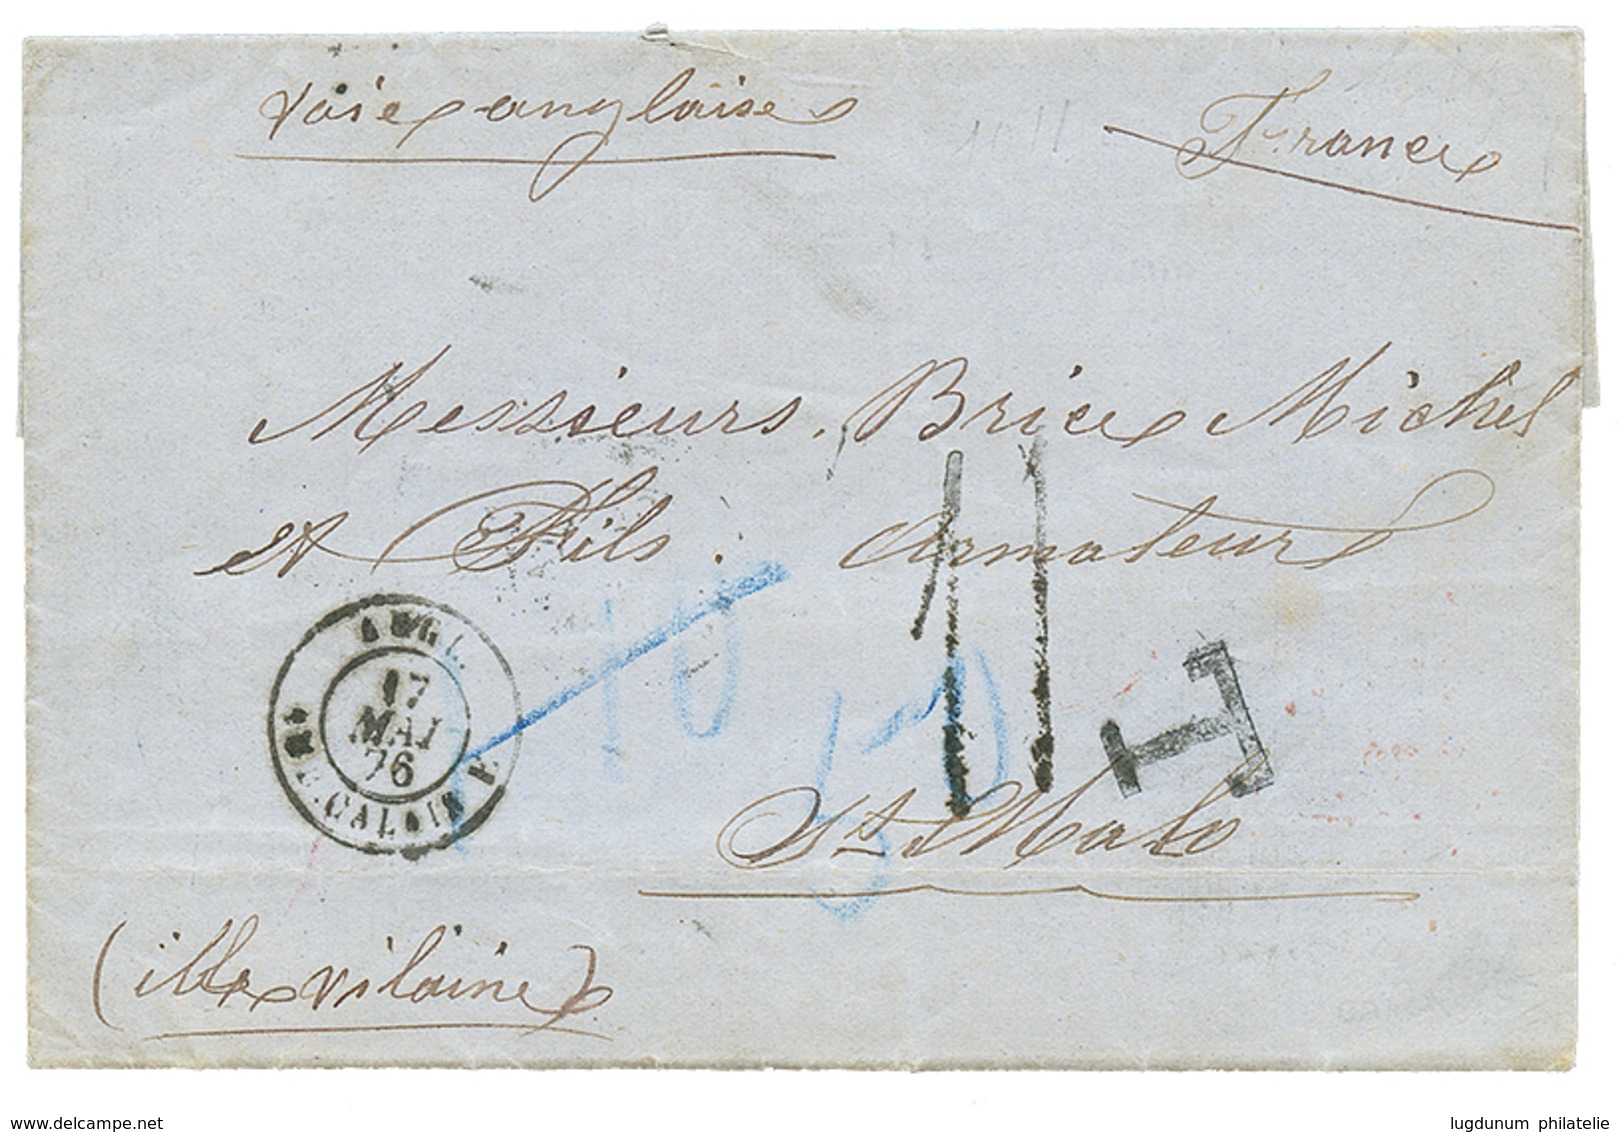 Voie anglaise
France
Messieurs. Brice Michel
et Fils. Armateurs
ANGL.
17
MAI
76
CALAIS
10
11
T
St Malo
(ille vilaine)
www.delcampe.net
lugdunum philatelie